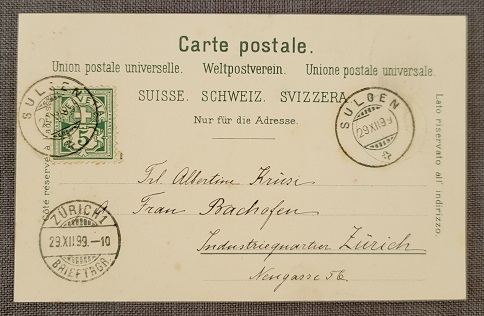 Carte postale.
Union postale universelle. Weltpostverein. Unione postale universale.
SUISSE. SCHWEIZ. SVIZZERA
Nur für die Adresse.
Côté réservé à l'adresse
Lato riservato all' indirizzo.
SULGEN
HELVETIA
5
SULGEN
29.XII.99
Frl. Albertine Krüsi
Frau Bachofen
Industriequartier Zürich
Neugasse 56
ZÜRICH 1
29.XII.99.–10
BRIEFTRGR.